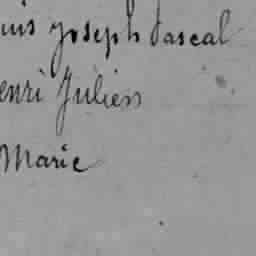 uis Joseph Pascal
enri Julien
Marie